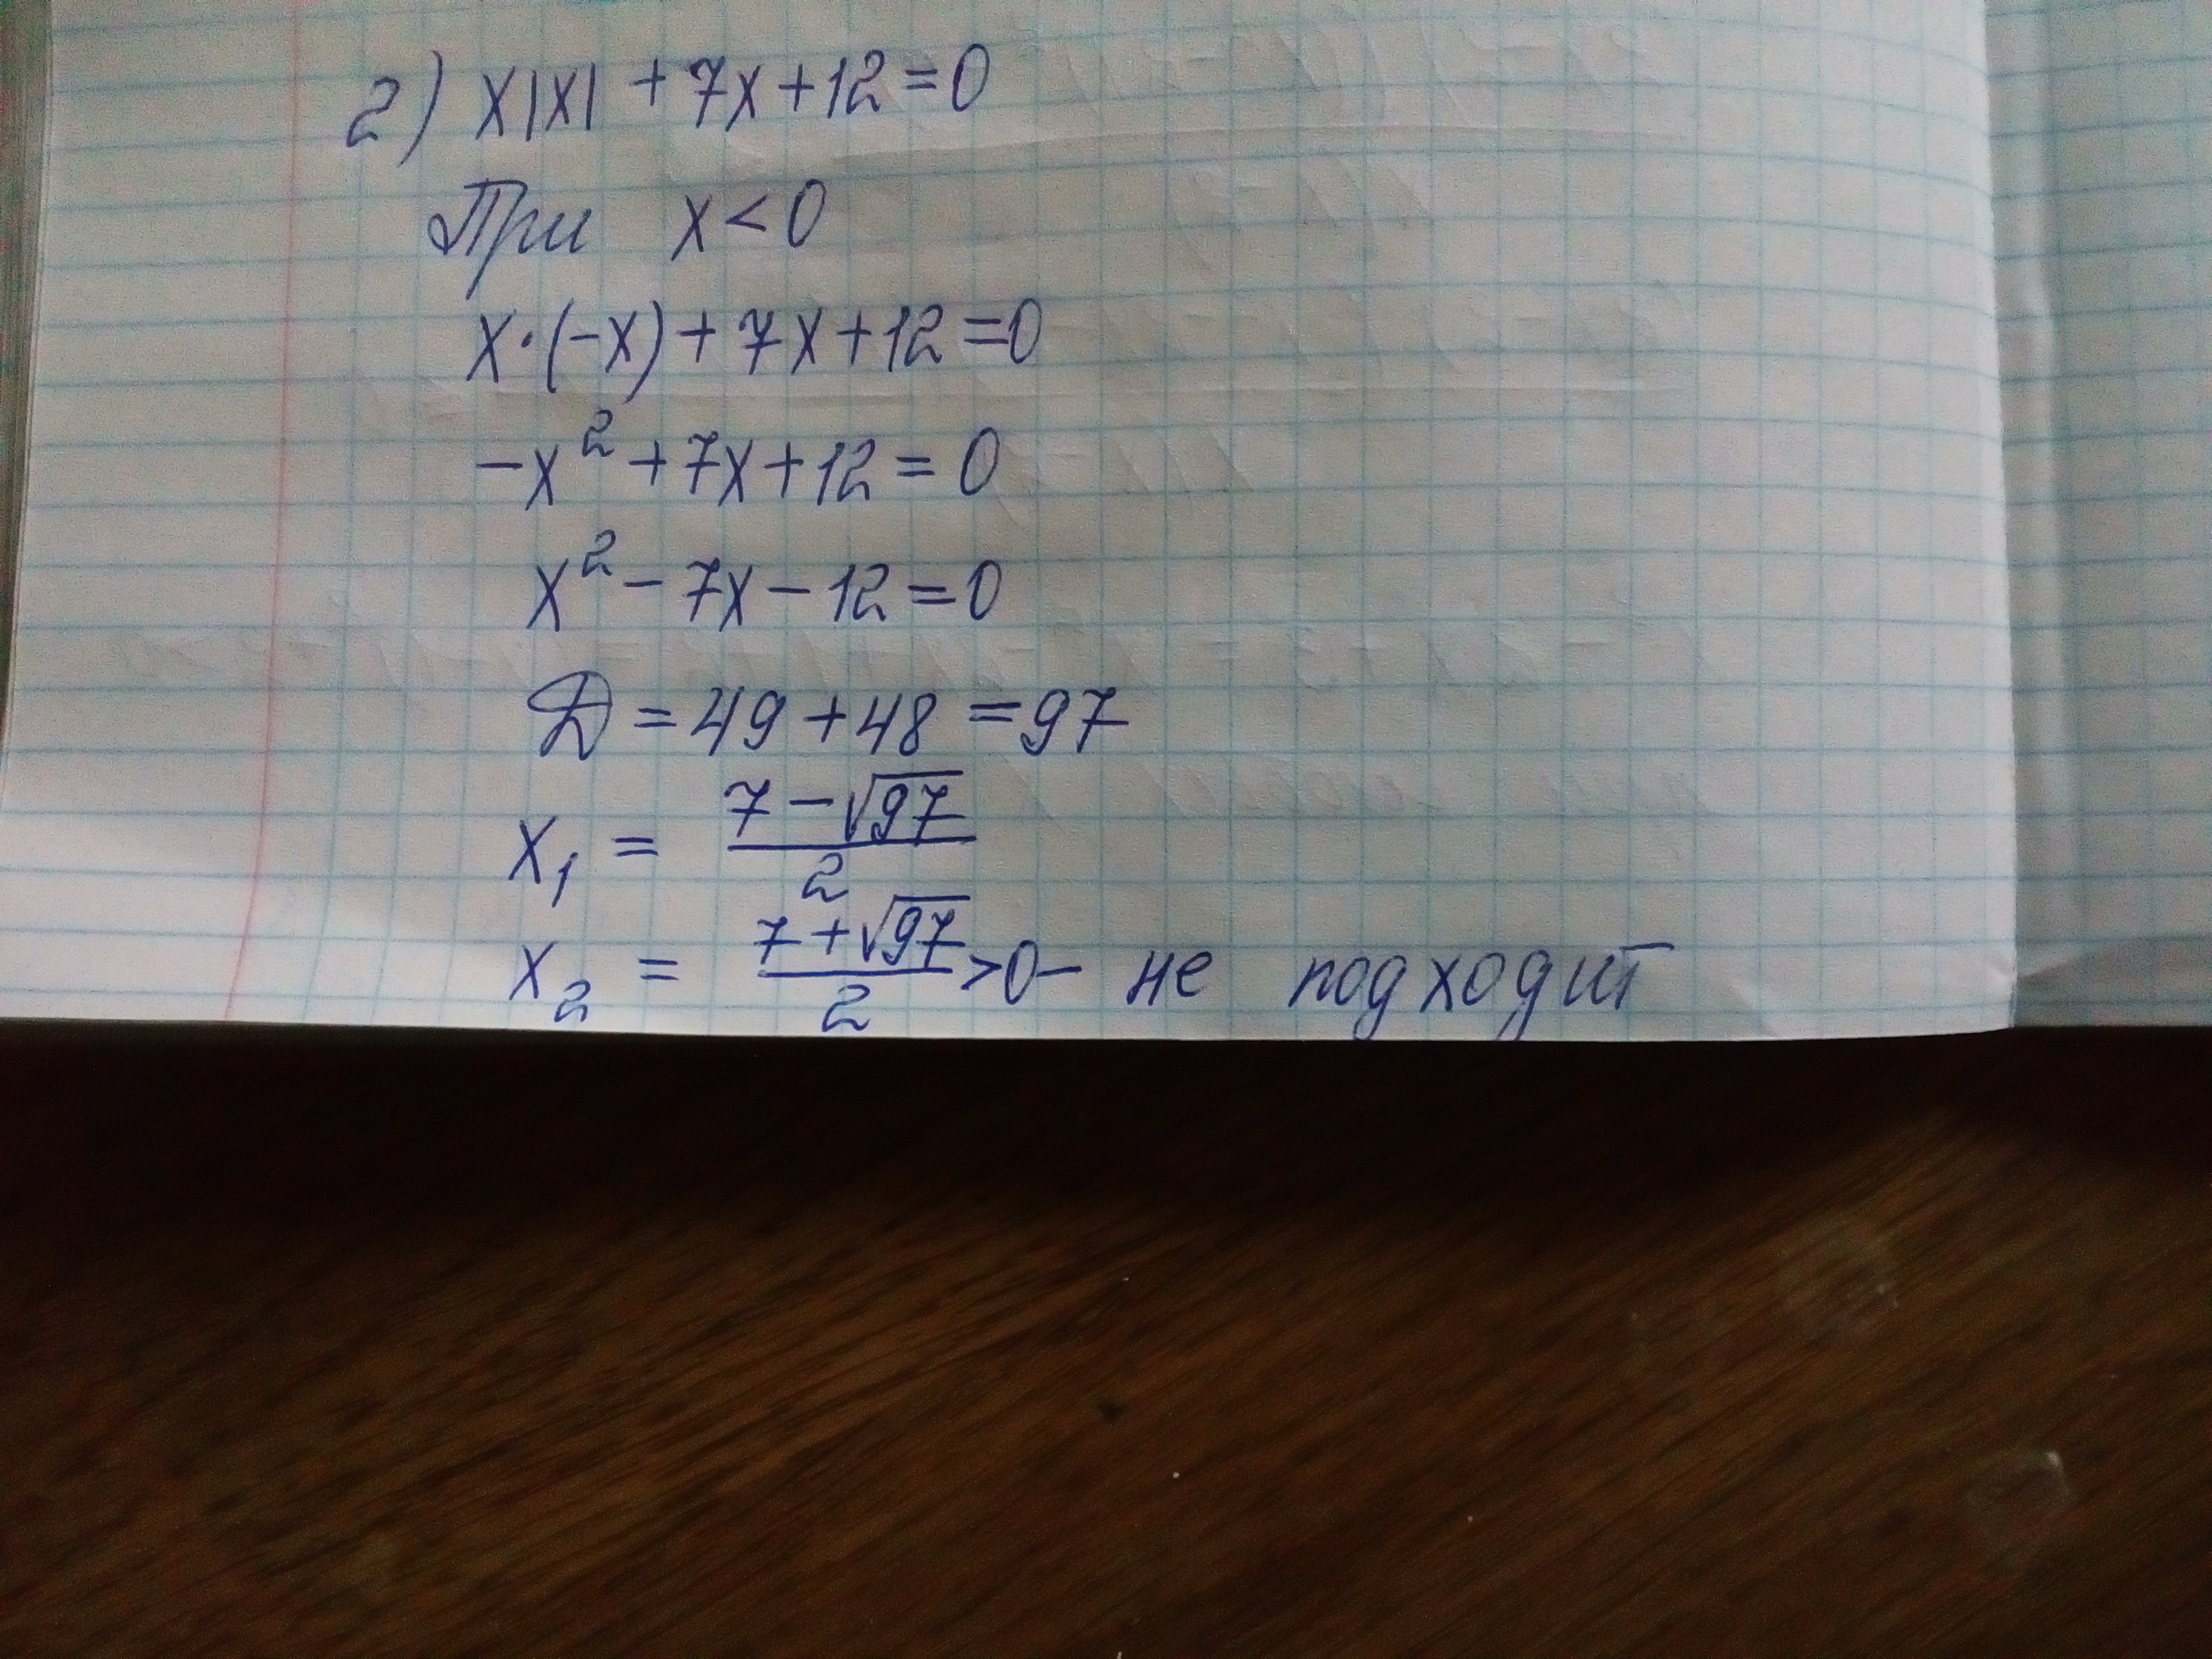 2) x|x| + 7x + 12 = 0
При x < 0
x·(-x) + 7x + 12 = 0
-x² + 7x + 12 = 0
x² - 7x - 12 = 0
Д = 49 + 48 = 97
x₁ = (7 - √97)/2
x₂ = (7 + √97)/2 > 0 - не подходит